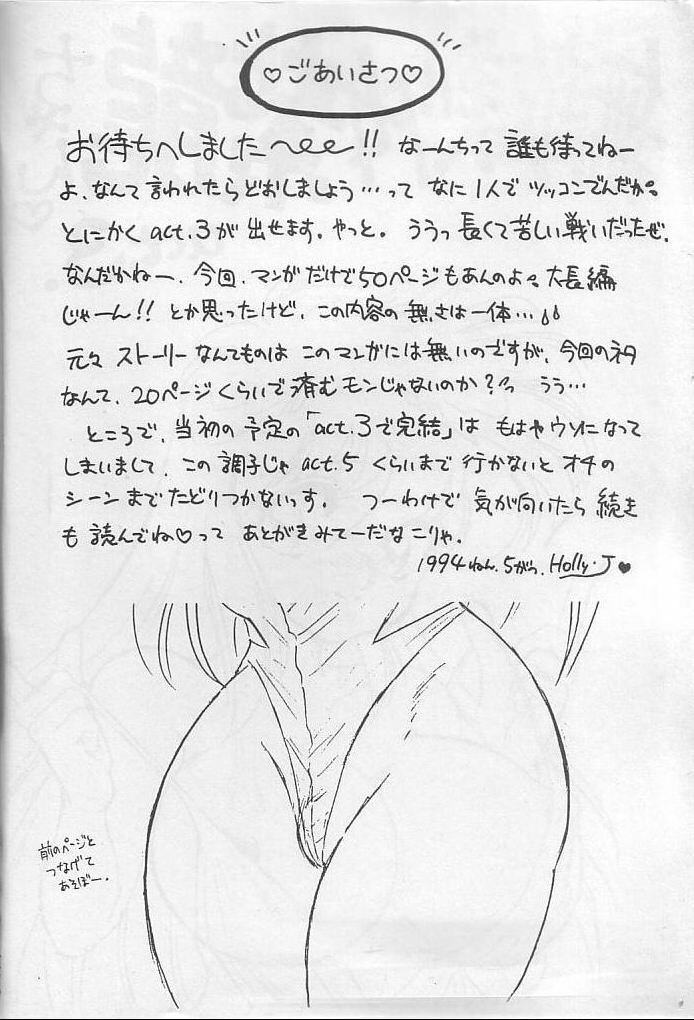 ♡ごあいさつ♡
お待たへしました〜ee!! なーんちって 誰も待ってねー
よ、なんて言われたらどおしましょう…って なに1人で ツッコンでんだか。
とにかく act.3が 出せます。やっと。 ううっ 長くて苦しい戦いだったぜ。
なんだかねー、今回、マンガだけで50ページもあんのよ。大長編
じゃーん!! とか思ったけど、この内容の無さは一体…
元々 ストーリーなんてものは このマンガには無いのですが、今回のネタ
なんて、20ページくらいで済むモンじゃないのか?っっ うう…
ところで、当初の予定の「act.3で完結」は もはやウソになって
しまいまして、この調子じゃ act.5 くらいまで行かないと オチの
シーンまでたどりつかないっす。 つーわけで 気が向いたら続き
も 読んでね♡って あとがきみてーだなこりゃ。
1994ねん.5がつ. Holly・J♥
前のページと
つなげて
あそぼー.